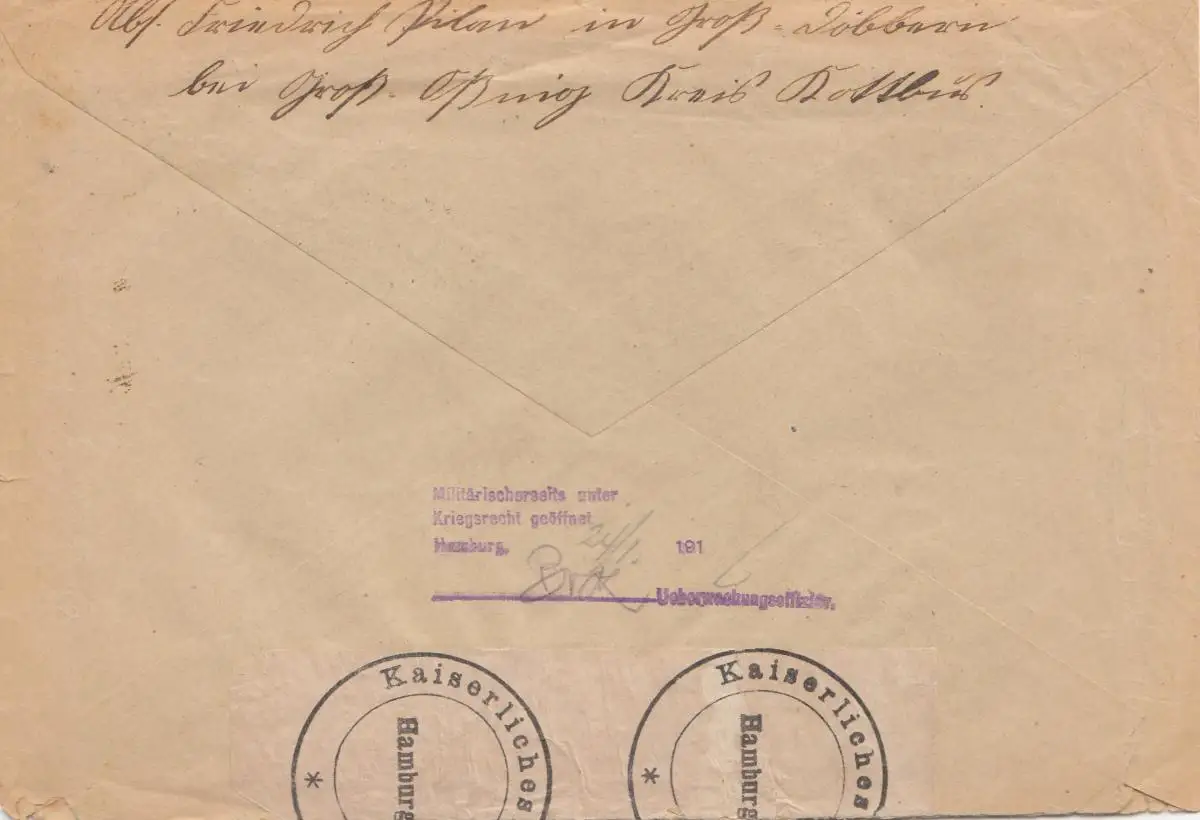 Abs. Friedrich Pilan in Groß-Döbbern
bei Groß-Oßnig Kreis Kottbus.
Militärischerseits unter
Kriegsrecht geöffnet
Hamburg, 191
Ueberwachungsoffizier.
Kaiserliches
Hamburg
*
Kaiserliches
Hamburg
*